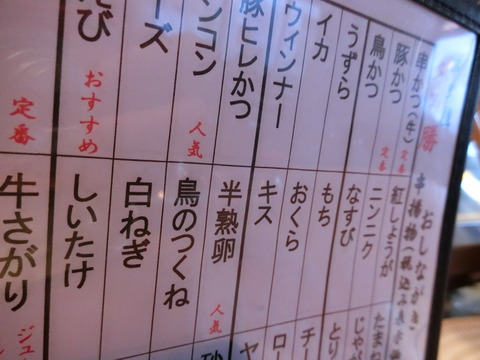 勝
おしながき
串揚物(税込み
串かつ(牛)
定番
豚かつ
定番
鳥かつ
うずら
イカ
ウインナー
豚ヒレかつ
ンコン
人気
ーズ
び
おすすめ
定番
紅しょうが
ニンニク
なすび
もち
おくら
キス
半熟卵
人気
鳥のつくね
白ねぎ
しいたけ
牛さがり
ジュ
たま
じゃが
とり
チー
ロー
ヤ
砂